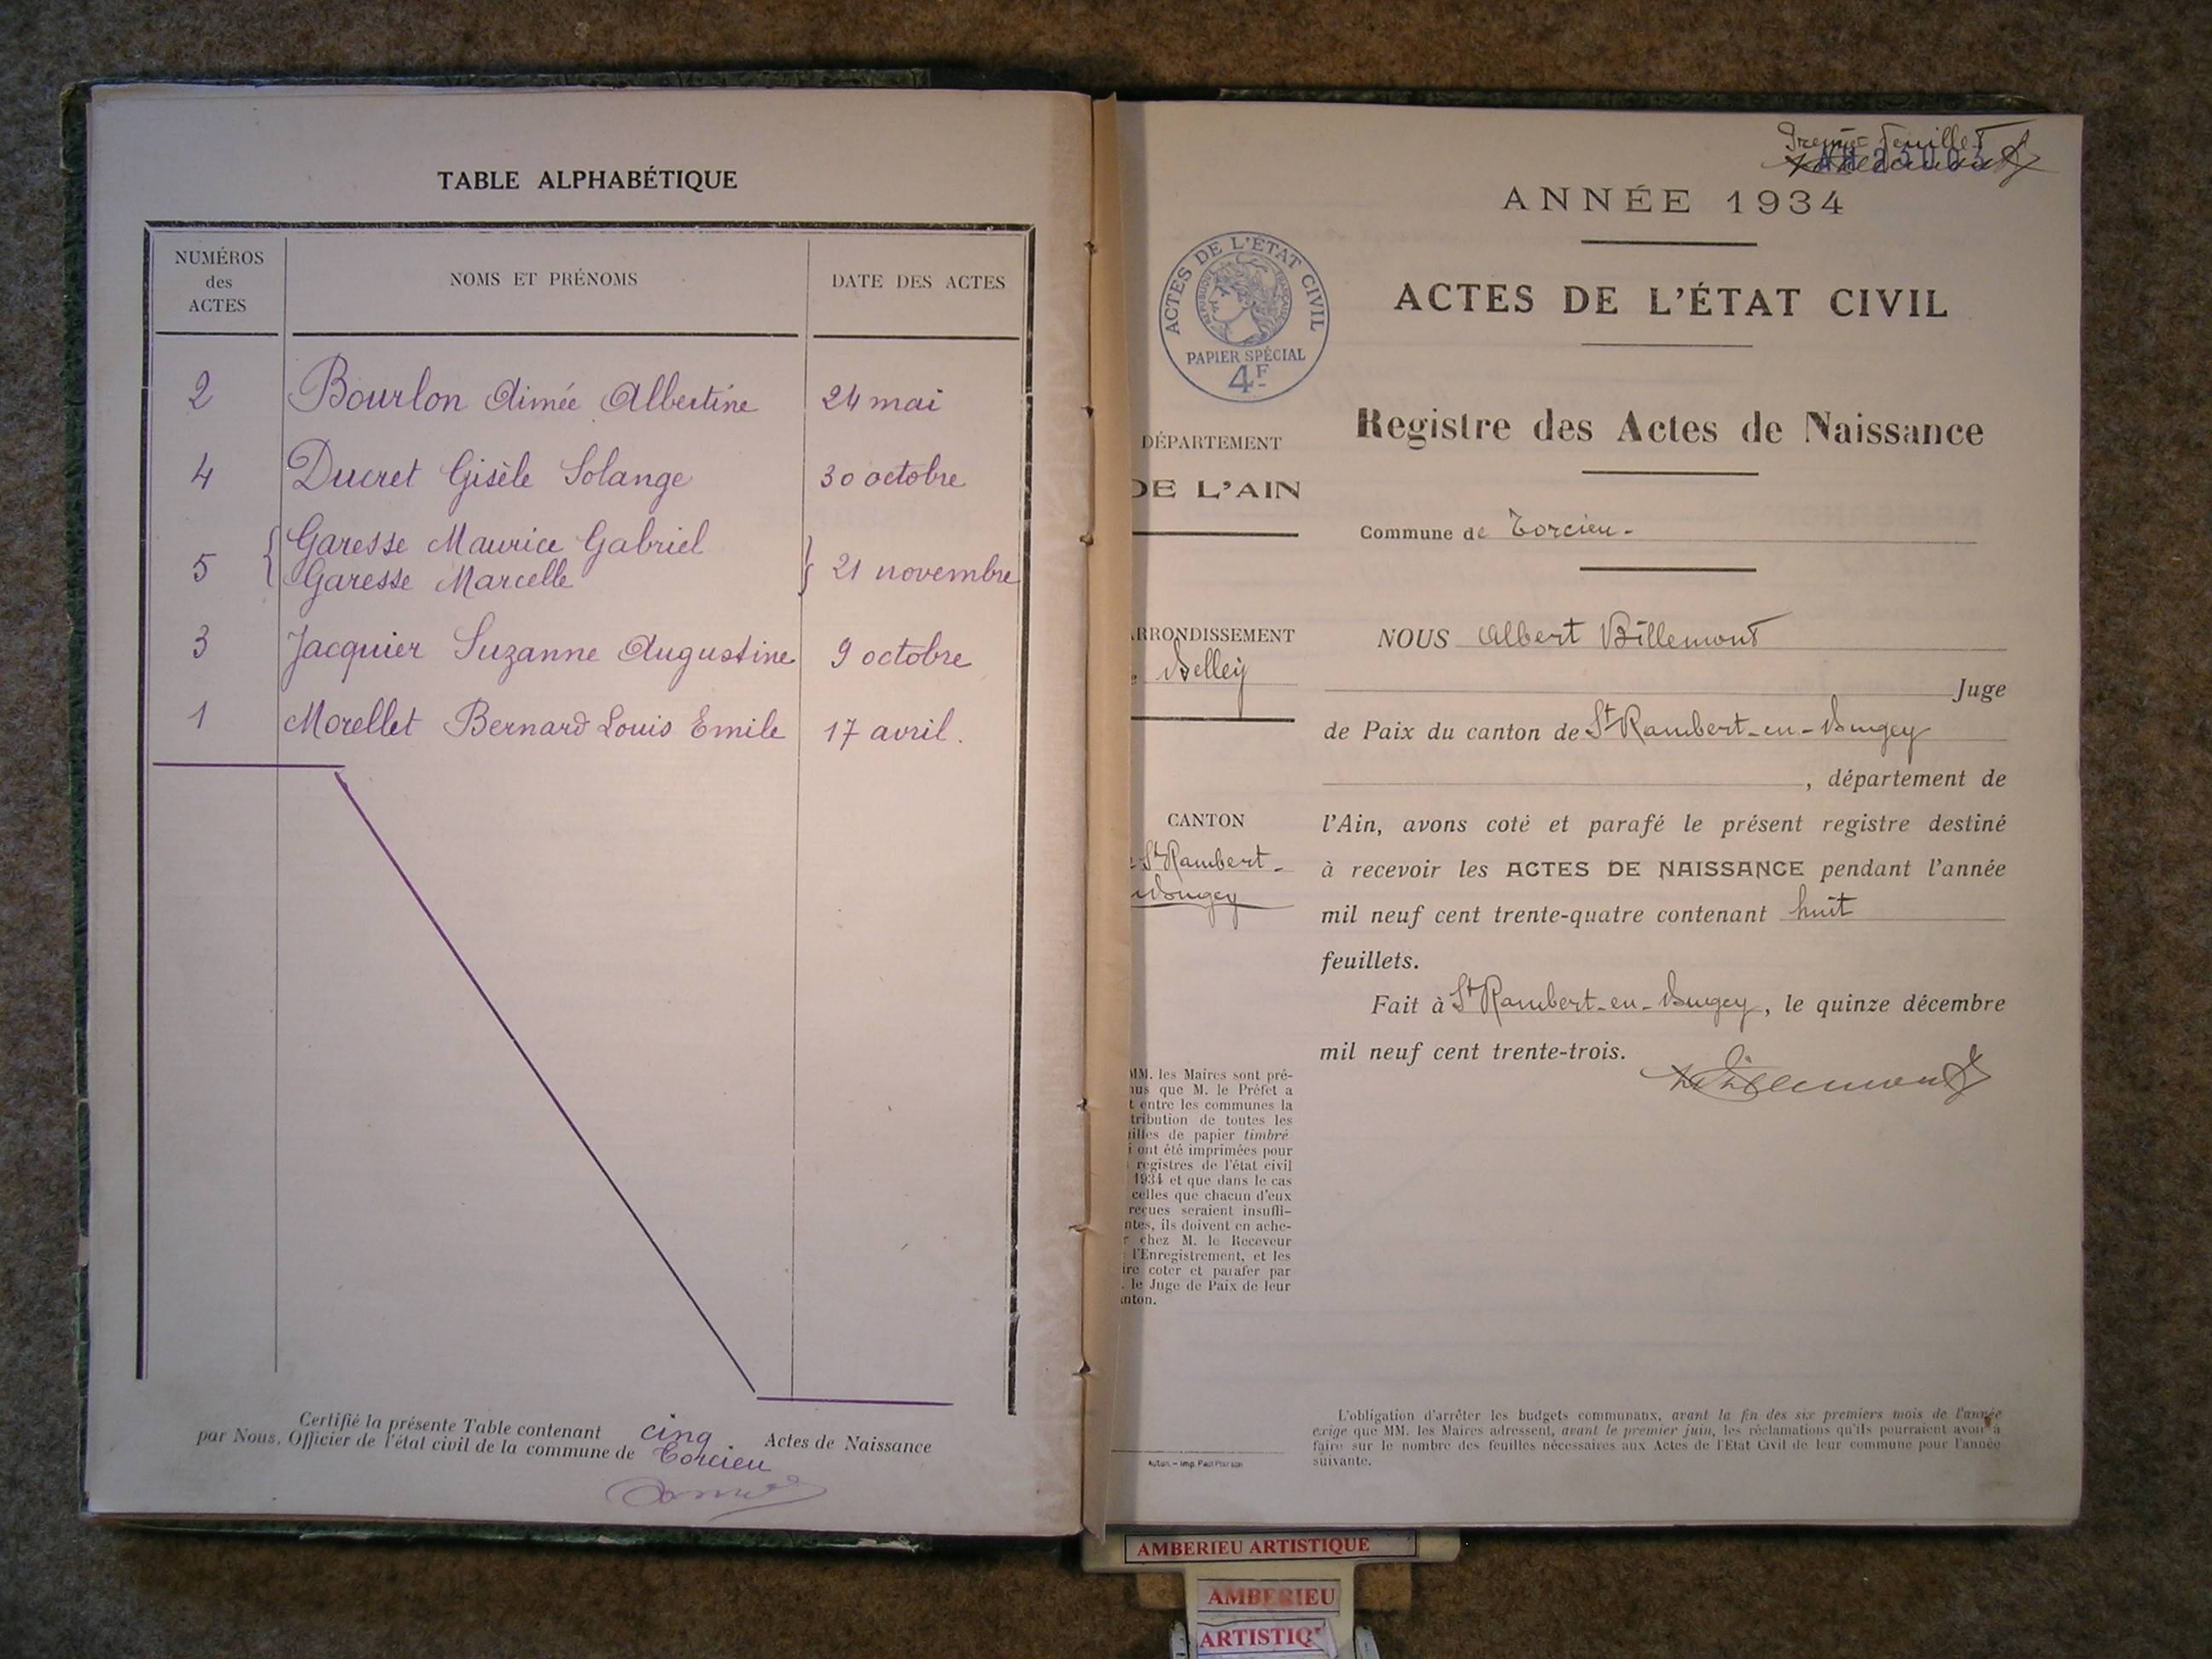 TABLE ALPHABÉTIQUE
NUMÉROS
des
ACTES
NOMS ET PRÉNOMS
DATE DES ACTES
2 Bourlon Aimée Albertine 24 mai
4 Ducret Gisèle Solange 30 octobre
Garesse Maurice Gabriel
5 Garesse Marcelle 21 novembre
3 Jacquier Suzanne Augustine 9 octobre
1 Morellet Bernard Louis Emile 17 avril.
Certifié la présente Table contenant cinq Actes de Naissance
par Nous, Officier de l'état civil de la commune de Torcieu
Premier feuillet
ANNÉE 1934
ACTES DE L'ÉTAT CIVIL
RÉPUBLIQUE FRANÇAISE
PAPIER SPÉCIAL
4F
ACTES DE L'ÉTAT CIVIL
Registre des Actes de Naissance
Commune de Torcieu.
DÉPARTEMENT
DE L'AIN
ARRONDISSEMENT
Belley
CANTON
St Rambert-
Bugey
NOUS Albert Billemont
Juge
de Paix du canton de St Rambert-en-Bugey
, département de
l'Ain, avons coté et parafé le présent registre destiné
à recevoir les ACTES DE NAISSANCE pendant l'année
mil neuf cent trente-quatre contenant huit
feuillets.
Fait à St Rambert-en-Bugey, le quinze décembre
mil neuf cent trente-trois.
MM. les Maires sont pré-
nus que M. le Préfet a
t entre les communes la
tribution de toutes les
illes de papier timbré
i ont été imprimées pour
registres de l'état civil
1934 et que dans le cas
celles que chacun d'eux
reçues seraient insuffi-
ntes, ils doivent en ache-
r chez M. le Receveur
l'Enregistrement, et les
ire coter et parafer par
. le Juge de Paix de leur
anton.
Autun. – Imp. Paul Pernson
L'obligation d'arrêter les budgets communaux, avant la fin des six premiers mois de l'année
exige que MM. les Maires adressent, avant le premier juin, les réclamations qu'ils pourraient avoir à
faire sur le nombre des feuilles nécessaires aux Actes de l'Etat Civil de leur commune pour l'année
suivante.
AMBERIEU ARTISTIQUE
AMBERIEU
ARTISTIQ